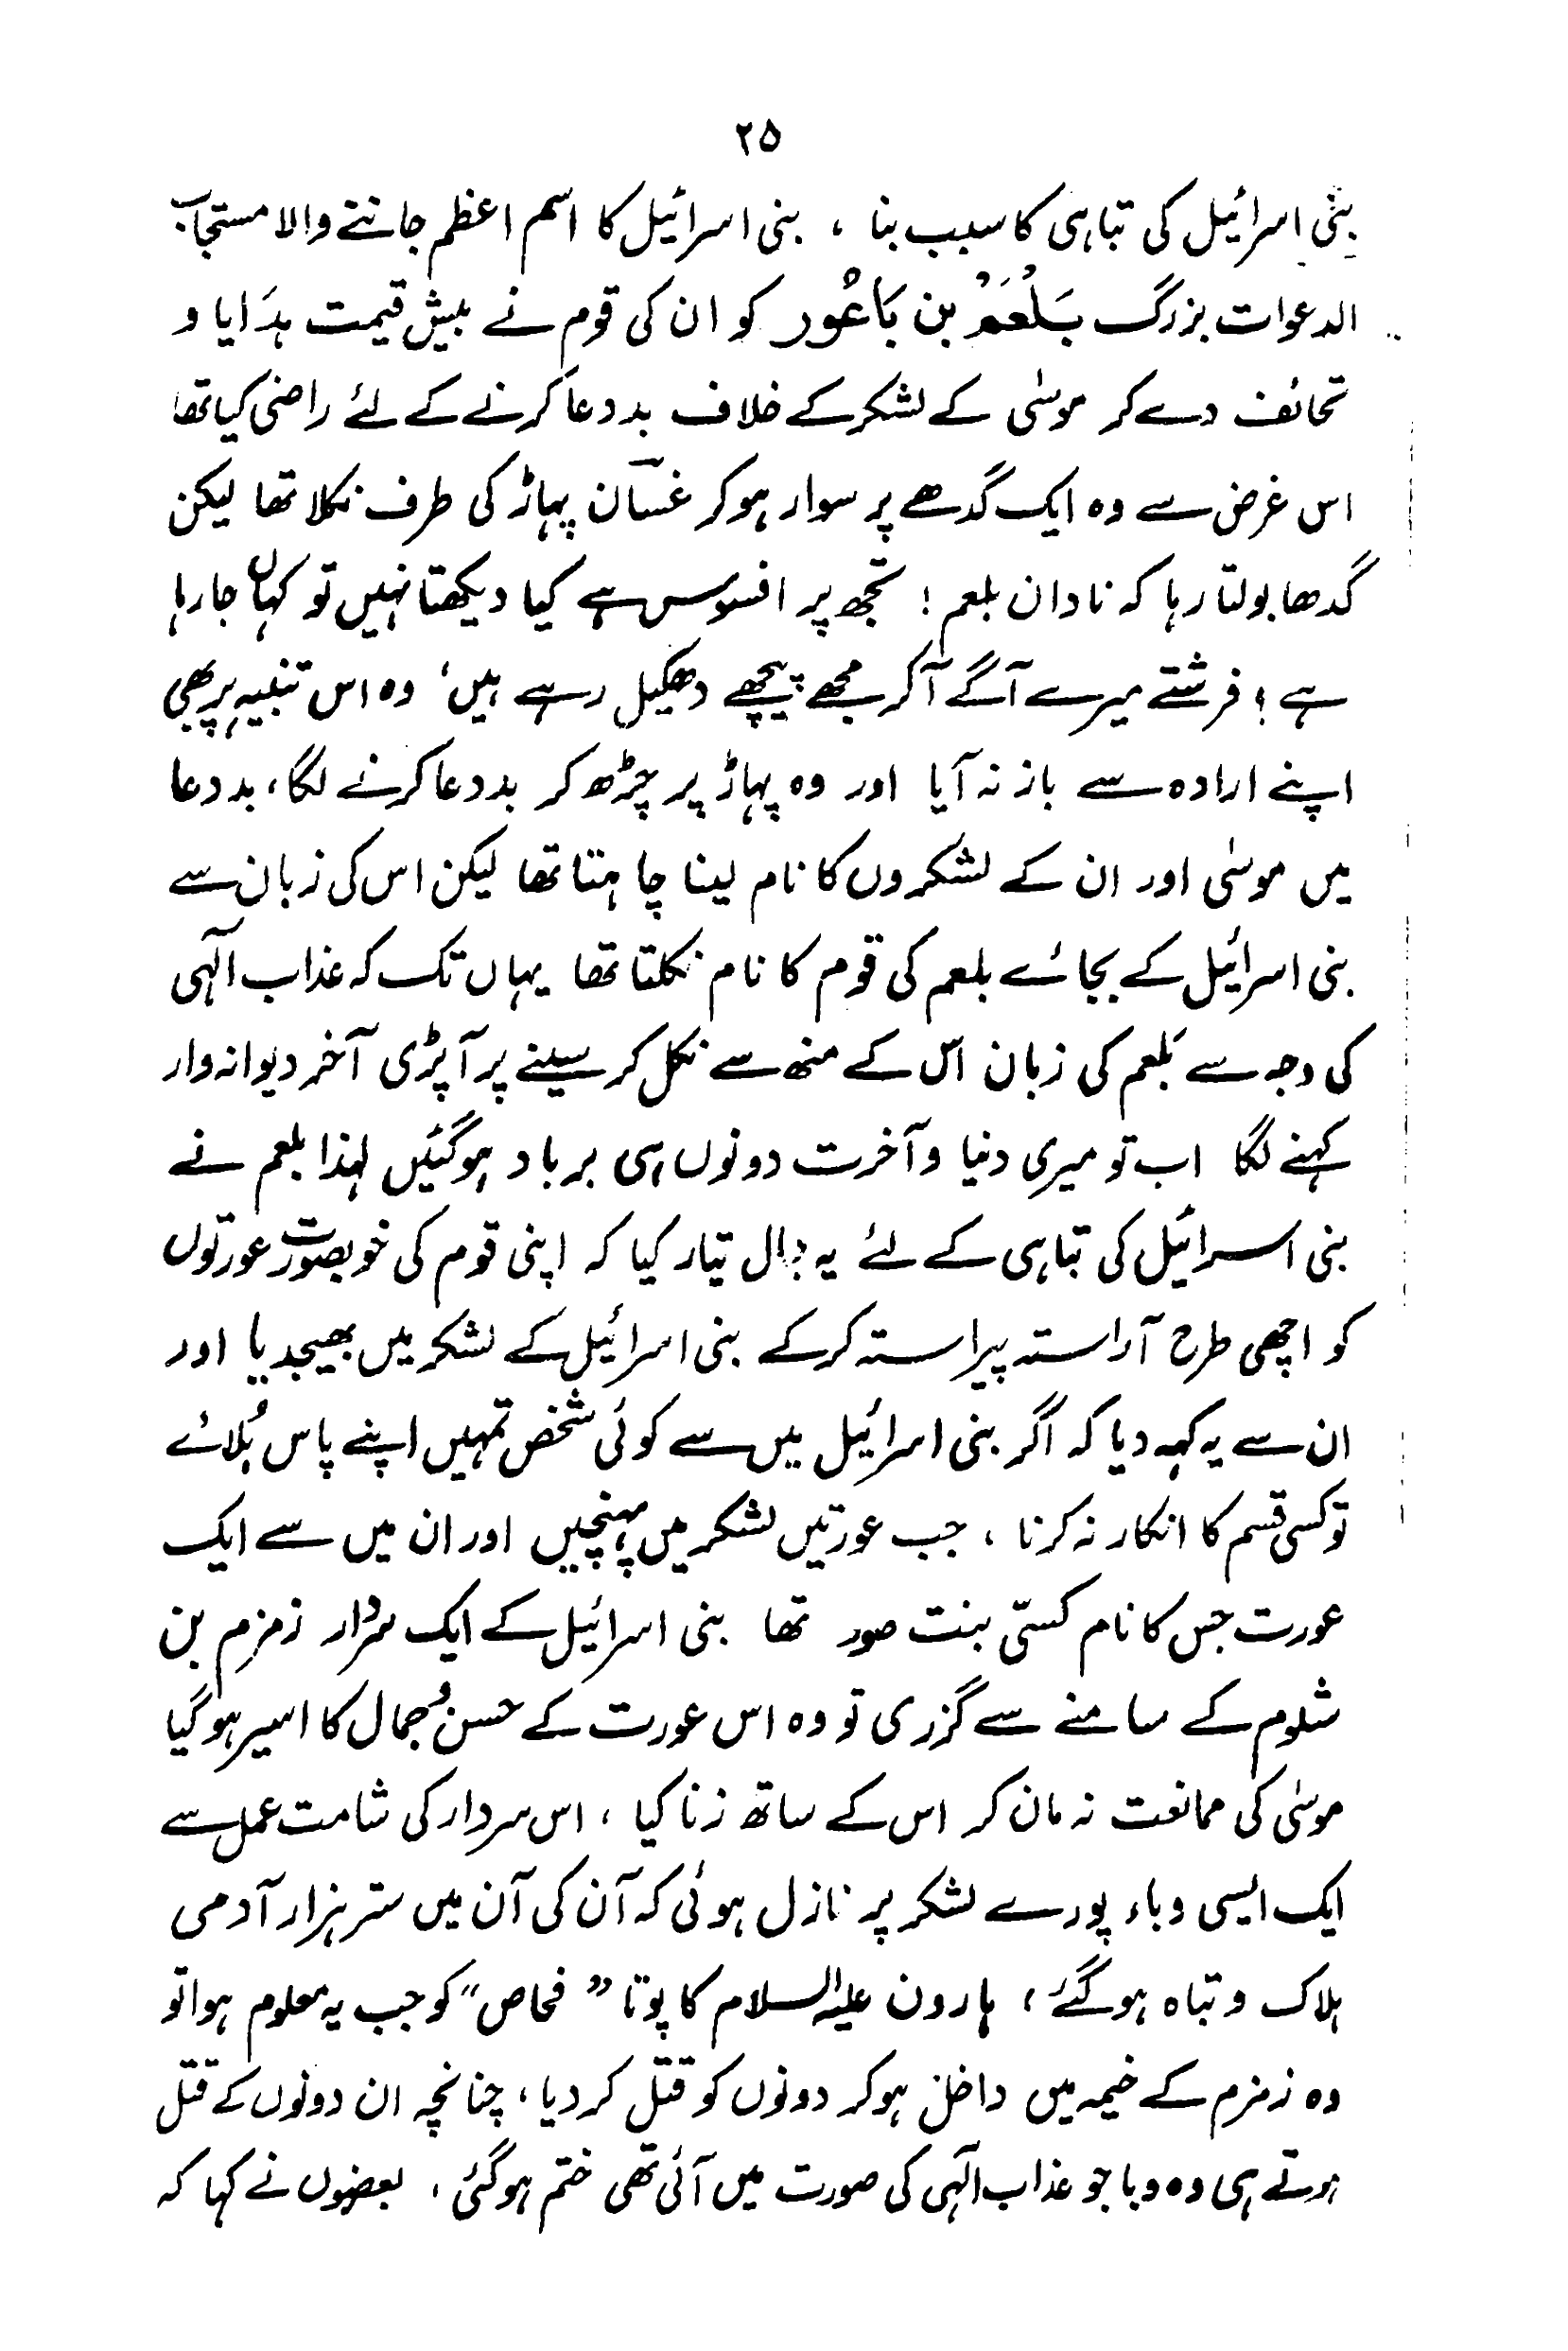 ۲۵
بنی اسرائیل کی تباہی کا سبب بنا ، بنی اسرائیل کا اسم اعظم جاننے والا مستجاب
الدعوات بزرگ بَلْعَمْ بن بَاعُور کو ان کی قوم نے بیش قیمت ہدَایا و
تحائف دے کر موسٰی کے لشکر کے خلاف بد دعا کرنے کے لئے راضی کیا تھا
اس غرض سے وہ ایک گدھے پر سوار ہو کر غسّان پہاڑ کی طرف نکلا تھا لیکن
گدھا بولتا رہا کہ نادان بلعم ! تجھ پر افسوس ہے کیا دیکھتا نہیں تو کہاں جا رہا
ہے ؟ فرشتے میرے آگے آکر مجھے پیچھے دھکیل رہے ہیں ، وہ اس تنبیہ پر بھی
اپنے ارادہ سے باز نہ آیا اور وہ پہاڑ پر چڑھ کر بد دعا کرنے لگا ، بد دعا
میں موسٰی اور ان کے لشکروں کا نام لینا چاہتا تھا لیکن اس کی زبان سے
بنی اسرائیل کے بجائے بلعم کی قوم کا نام نکلتا تھا یہاں تک کہ عذاب الٰہی
کی وجہ سے بَلعم کی زبان اس کے منھ سے نکل کر سینے پر آ پڑی آخر دیوانہ وار
کہنے لگا اب تو میری دنیا و آخرت دونوں ہی برباد ہو گئیں لہٰذا بلعم نے
بنی اسرائیل کی تباہی کے لئے یہ جال تیار کیا کہ اپنی قوم کی خوبصورت عورتوں
کو اچھی طرح آراستہ پیراستہ کرکے بنی اسرائیل کے لشکر میں بھیجدیا اور
ان سے یہ کہہ دیا کہ اگر بنی اسرائیل میں سے کوئی شخص تمہیں اپنے پاس بُلائے
تو کسی قسم کا انکار نہ کرنا ، جب عورتیں لشکر میں پہنچیں اور ان میں سے ایک
عورت جس کا نام کستّی بنت صور تھا بنی اسرائیل کے ایک سردار زمزم بن
شلوم کے سامنے سے گزری تو وہ اس عورت کے حسن و جمال کا اسیر ہو گیا
موسٰی کی ممانعت نہ مان کر اس کے ساتھ زنا کیا ، اس سردار کی شامت عمل سے
ایک ایسی وباء پورے لشکر پر نازل ہوئی کہ آن کی آن میں ستر ہزار آدمی
ہلاک و تباہ ہو گئے ، ہارون علیہ السلام کا پوتا ” فحاص “ کو جب یہ معلوم ہوا تو
وہ زمزم کے خیمہ میں داخل ہو کر دونوں کو قتل کر دیا ، چنانچہ ان دونوں کے قتل
ہوتے ہی وہ وبا جو عذاب الٰہی کی صورت میں آئی تھی ختم ہو گئی ، بعضوں نے کہا کہ